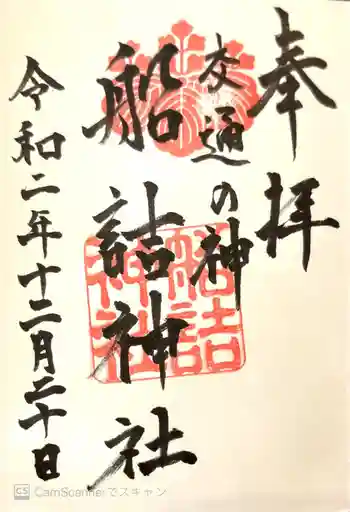 奉拝
交通の神
船詰神社
船詰神社
令和二年十二月二十日
CS CamScannerでスキャン